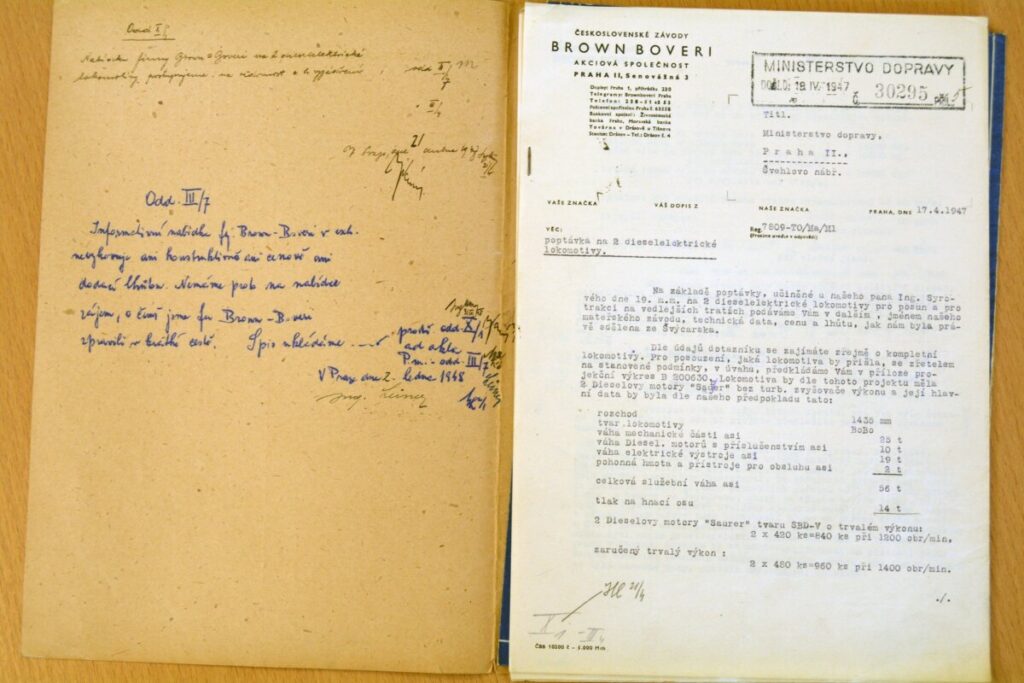 Nabídku firmy Brown-Boveri na 2 dieselelektrické
lokomotivy postupujeme
Odd. III/7
Informativní nabídka fy. Brown-Boveri v
nevyhovuje ani konstruktivně ani cenově ani
dodací lhůtou. Nemáme proto na nabídce
zájem, o čemž jsme fu Brown-Boveri
zpravili v krátké cestě. Spis ukládáme
prostř. odd.
ad akta
odd. III/7
V Praze dne 2. ledna 1948
Ing.
ČESKOSLOVENSKÉ ZÁVODY
BROWN BOVERI
AKCIOVÁ SPOLEČNOST
PRAHA II, Senovážná 3
Dopisy: Praha 1, přihrádka 220
Telegramy: Brownboveri Praha
Telefon:
Poštovní spořitelna Praha č.
Bankovní spojení: Živnostenská
banka Praha, Moravská banka
Továrna v Drásově u Tišnova
Stanice: Drásov - Tel.: Drásov č. 4
MINISTERSTVO DOPRAVY
DOŠLO: 18. IV. 1947
č. 30295 příl.
Titl.
Ministerstvo dopravy,
Praha II.,
Švehlovo nábř.
VAŠE ZNAČKA
VÁŠ DOPIS Z
NAŠE ZNAČKA
PRAHA, DNE 17.4.1947
Reg. 7809-TO/Ma/Hl
(Prosíme uvésti v odpovědi)
VĚC:
poptávka na 2 dieselelektrické
lokomotivy.
Na základě poptávky, učiněné u našeho pana Ing. Syro-
vého dne 19. m.m. na 2 dieselelektrické lokomotivy pro posun a pro
trakci na vedlejších tratích podáváme Vám v dalším , jménem našeho
mateřského závodu, technická data, cenu a lhůtu, jak nám byla prá-
vě sdělena ze Švýcarska.
Dle údajů dotazníku se zajímáte zřejmě o kompletní
lokomotivy. Pro posouzení, jaká lokomotiva by přišla, se zřetelem
na stanovené podmínky, v úvahu, předkládáme Vám v příloze pro-
jekční výkres B 200630. Lokomotiva by dle tohoto projektu měla
2 Dieselovy motory "Saurer" bez turb. zvyšovače výkonu a její hlav-
ní data by byla dle našeho předpokladu tato:
rozchod 1435 mm
tvar lokomotivy BoBo
váha mechanické části asi 25 t
váha Diesel. motorů s příslušenstvím asi 10 t
váha elektrické výstroje asi 19 t
pohonná hmota a přístroje pro obsluhu asi 2 t
celková služební váha asi 56 t
tlak na hnací osu 14 t
2 Dieselovy motory "Saurer" tvaru SBD-V o trvalém výkonu:
2 x 420 ks=840 ks při 1200 obr/min.
zaručený trvalý výkon :
2 x 480 ks=960 ks při 1400 obr/min.
./.